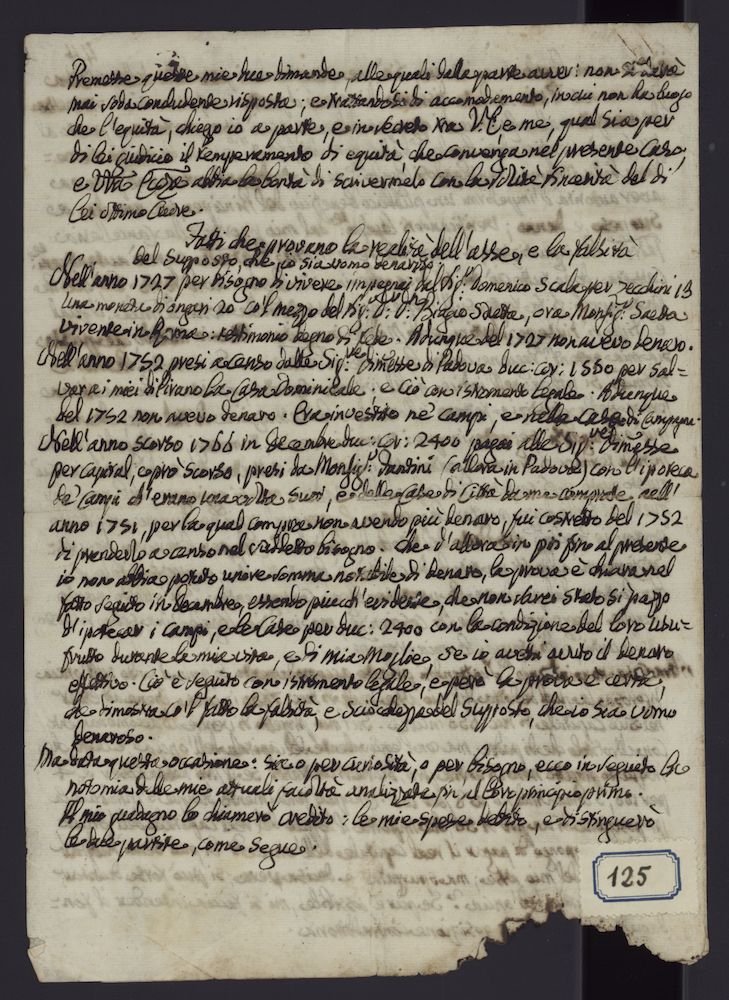 Premesse queste mie due dimande, alle quali dalla parte avver: non si darà
mai soda concludente risposta; e trattandosi di accomodamento, in cui non ha luogo
che l'equità, chiedo io a parte, e in secreto tra V. E. e me, qual sia per
di lei giudicio il temperamento di equità, che convenga nel presente caso,
e abbia la bontà di scrivermelo con la solita sincerità del di
lei ottimo cuore.
Fatti che provano la realtà dell'asse, e la falsità
del supposto, che io sia uomo denaroso
Nell'anno 1727 per bisogno di vivere impegnai dal Sig.r Domenico Scala per zecchini 13
una moneta di ongari 20 col mezzo del Sig.r D. Biagio Saetta, ora Monsig.r Saetta
vivente in Roma: testimonio degno di fede. Adunque del 1727 non avevo denaro.
Nell'anno 1752 presi a censo dalle Sig.re Dimesse di Padova duc: cor: 1550 per sal=
var a i miei di Pirano la Casa Dominicale; e ciò con istromento legale. Adunque
del 1752 non avevo denaro. Era investito ne' campi, e nella Casa di campagna.
Nell'anno scorso 1766 in Decembre duc: cor: 2400 pagai alle Sig.re Dimesse
per capital, e pro scorso, presi da Monsig.r Dandini (allora in Padova) con l'ipoteca
de' campi ch'erano una volta suoi, e delle Case di Città da me comprate nell'
anno 1751, per la qual compra non avendo più denaro, fui costretto del 1752
di prenderlo a censo nel suddetto bisogno. Che d'allora in poi fino al presente
io non abbia potuto unire somma notabile di denaro, la prova è chiara nel
fatto seguito in Decembre, essendo più ch'evidente, che non sarei stato sì pazzo
d'ipotecar i campi, e le Case per duc: 2400 con la condizione del loro usu=
frutto durante la mia vita, e di mia Moglie, se io avessi avuto il denaro
effettivo. Ciò è seguito con istromento legale, e però la prova è certa,
che dimostra col fatto la falsità, e sciochezza del supposto, che io sia uomo
denaroso.
Ma data questa occasione: sia o per curiosità, o per bisogno, ecco in seguito la
notomia delle mie attuali facoltà analizzata fin al loro principio primo.
Il mio guadagno lo chiamerò credito: le mie spese debito, e distinguerò
le due partite, come segue.
125